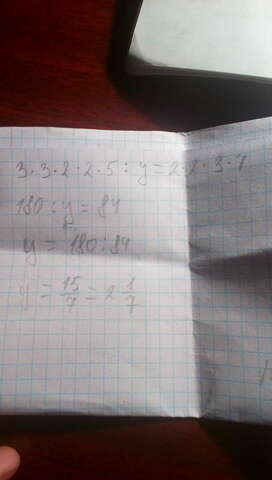 3·3·2·2·5:y=2·2·3·7
180:y=84
y=180:84
y=15/7=2 1/7